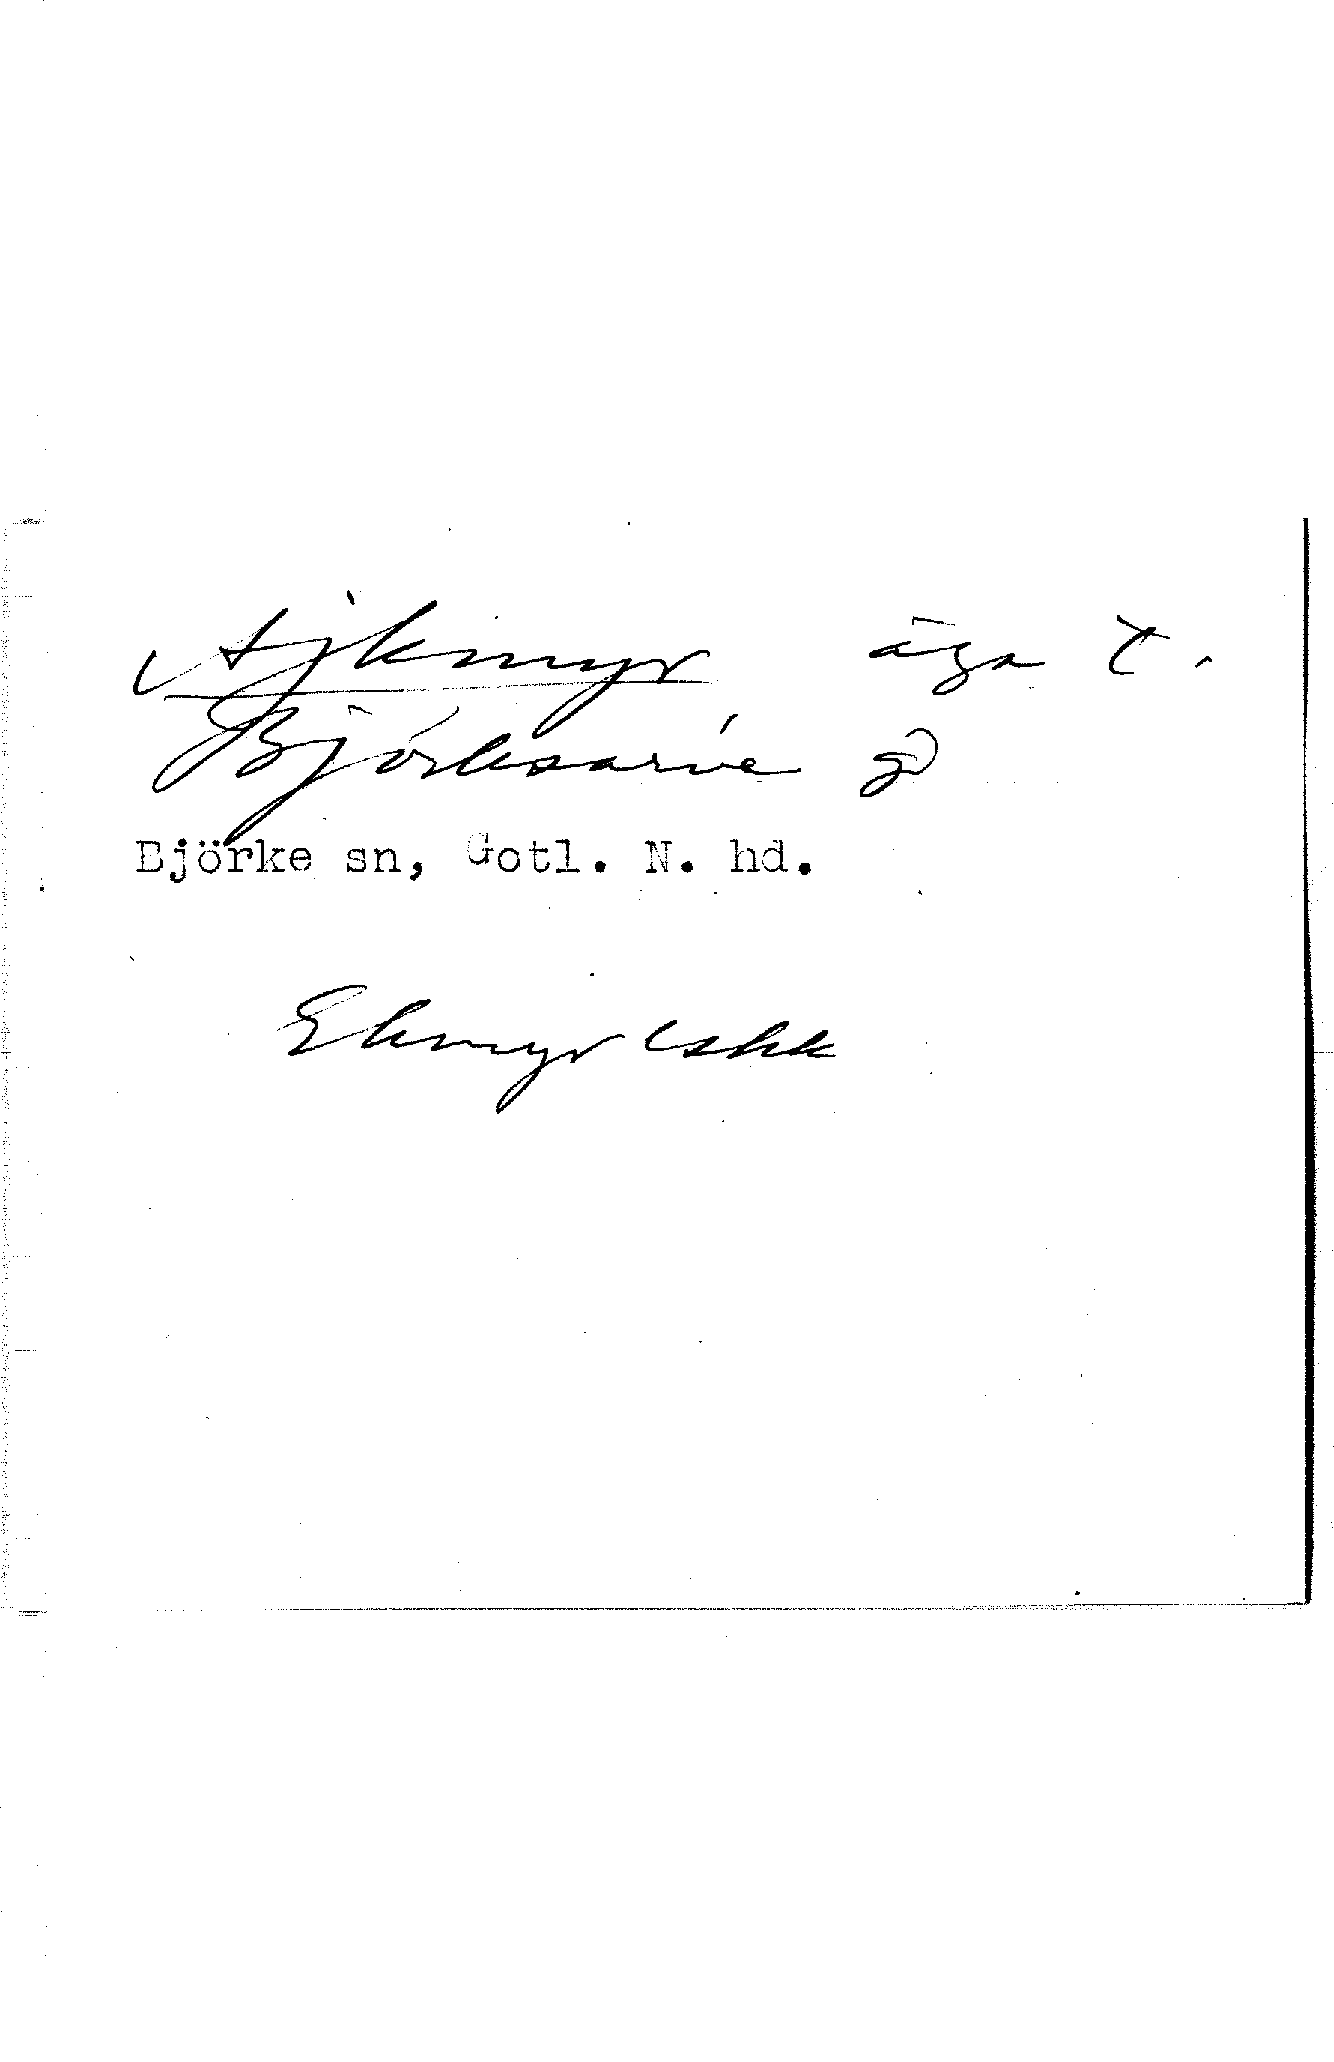 Ajkmyr äga t.
Björksarve gd
Björke sn, Gotl. N. hd.
Ekmyr Lskk